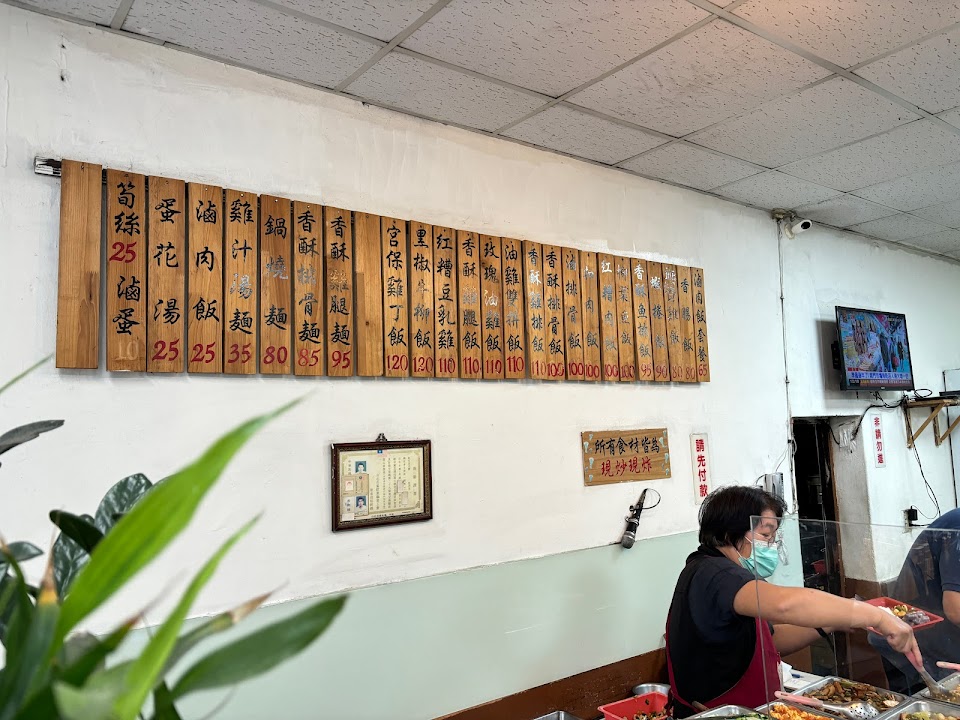 筍絲 25 滷蛋 10
蛋花湯 25
滷肉飯 25
雞汁湯麵 35
鍋燒麵 80
香酥排骨麵 85
香酥雞腿麵 95
宮保雞丁飯 120
黑椒牛柳飯 120
紅糟豆乳雞 110
香酥雞腿飯 110
玫瑰油雞飯 110
油雞雙拼飯 110
香酥雞排飯 110
香酥排骨飯 100
滷排骨飯 100
肉飯 100
紅糟肉飯 100
飯 100
香魚排飯 95
飯 90
飯 80
香腸飯 80
滷肉飯套餐 65
所有食材皆為
現炒現炸
請先付款
非請勿進